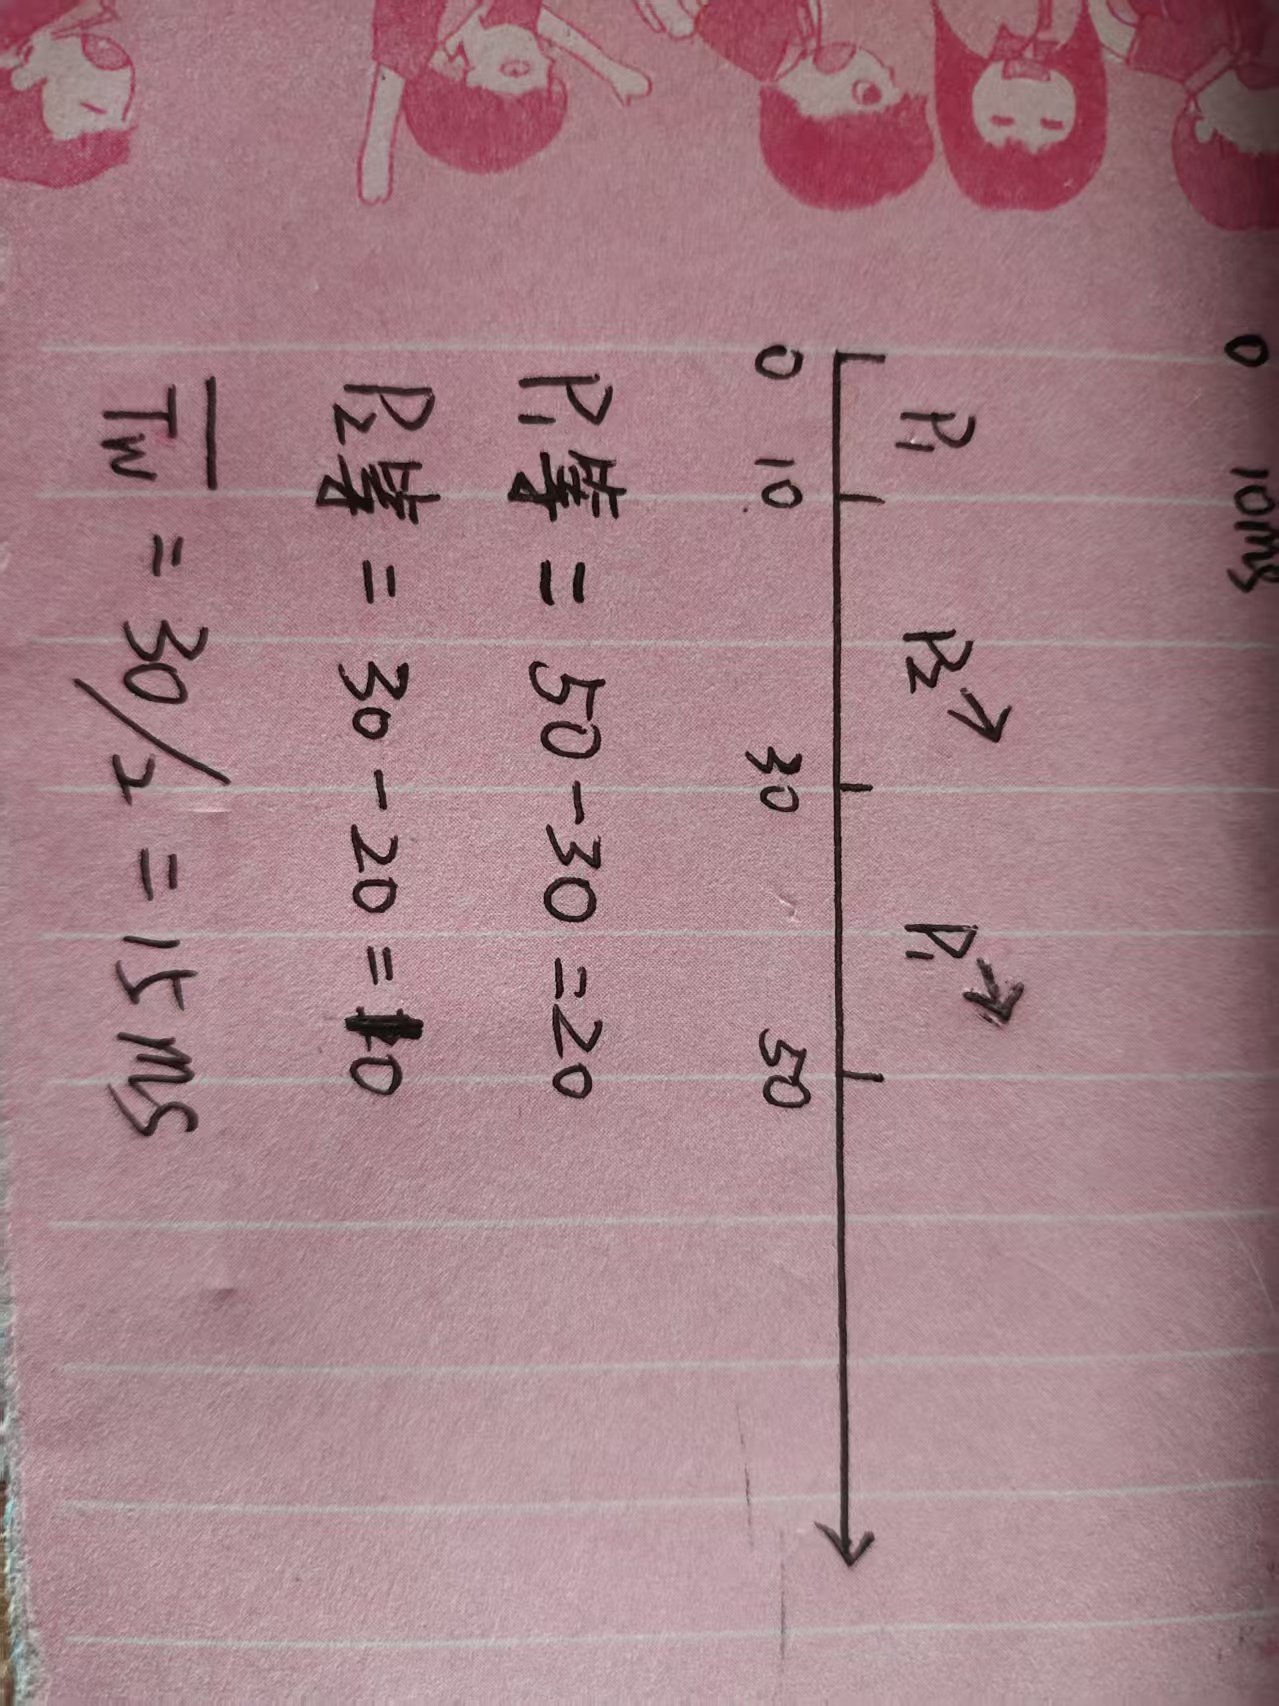 0 10ms
P1 P2↗ P1↗
0 10 30 50
P1等 = 50 - 30 = 20
P2等 = 30 - 20 = 10
Tw = 30/2 = 15 ms